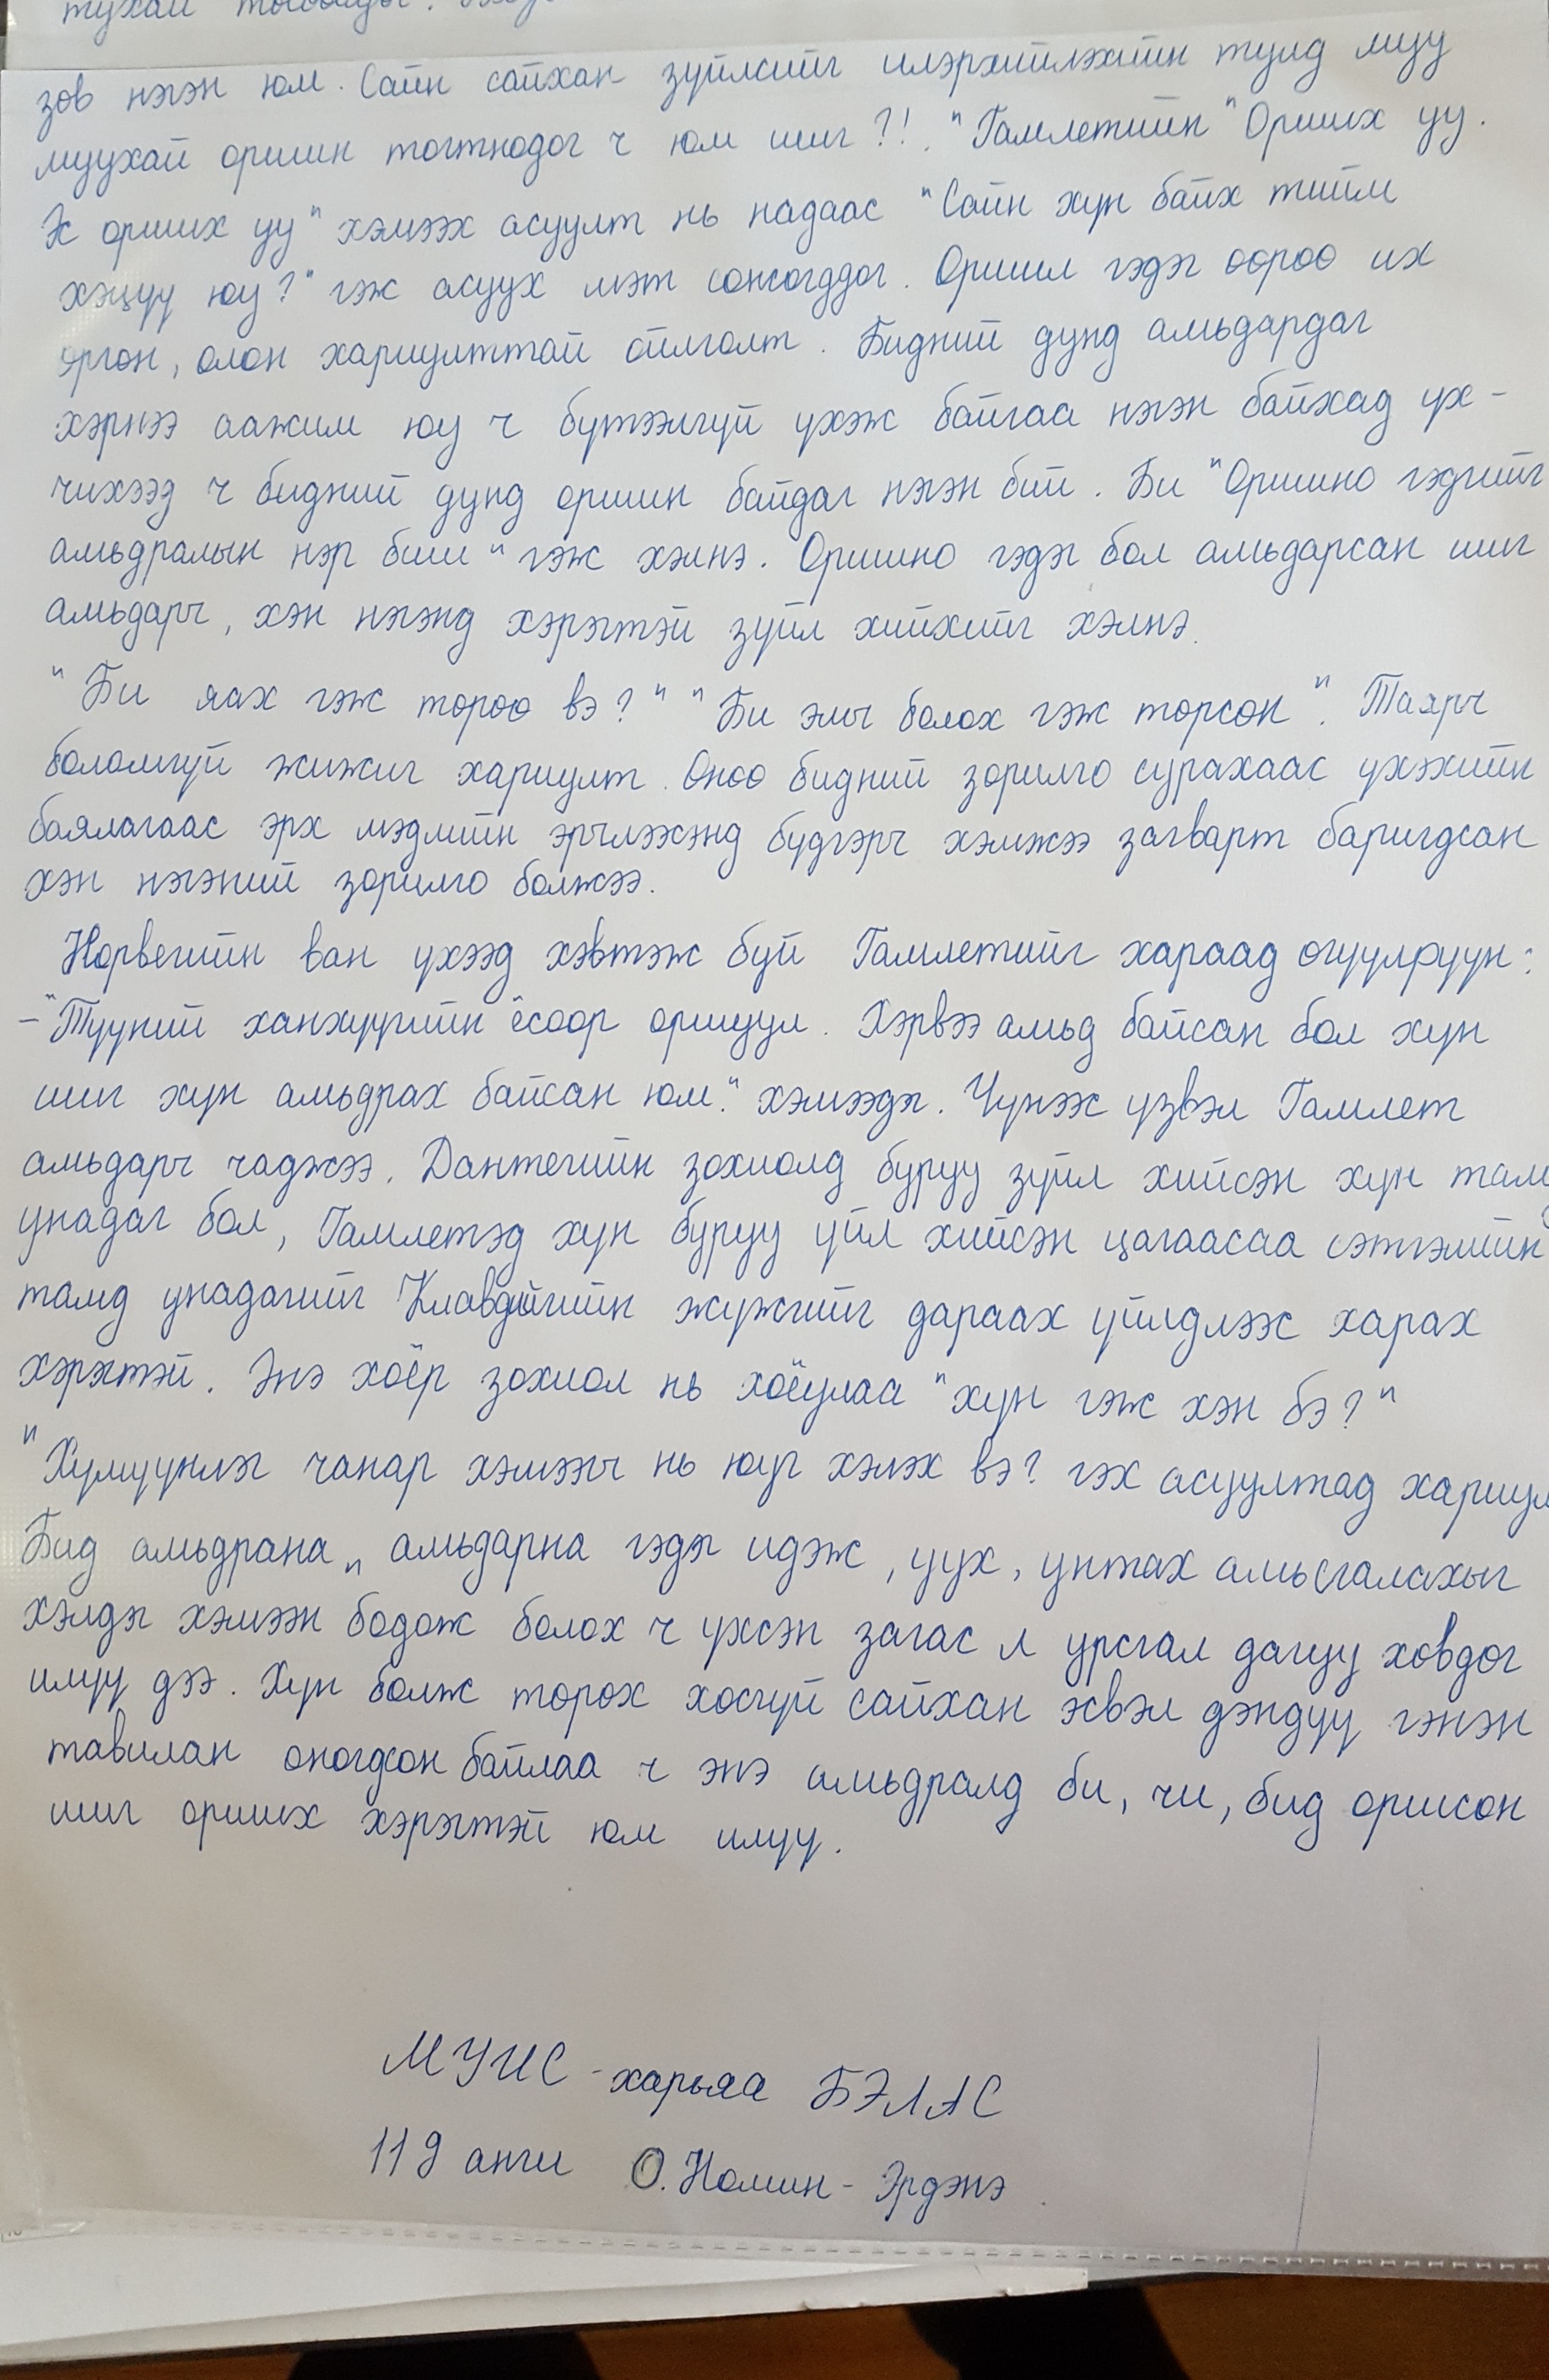 тухай
зөв нэгэн юм. Сайн сайхан зүйлсийг илэрхийлэхийн тулд муу
муухай оршин тогтнодог ч юм шиг?!. "Гамлетийн" Орших уу.
Эс орших уу" хэмээх асуулт нь надаас "Сайн хүн байх тийм
хэцүү юу?" гэж асуух мэт сонсогддог. Оршил гэдэг өөрөө их
өргөн, олон хариулттай ойлголт. Бидний дунд амьдардаг
хэрнээ аажим юу ч бүтээлгүй үхэж байгаа нэгэн байхад үх-
чихээд ч бидний дунд оршин байдаг нэгэн бий. Би "Оршино гэдгийг
амьдралын нэр биш" гэж хэлнэ. Оршино гэдэг бол амьдарсан шиг
амьдарч, хэн нэгэнд хэрэгтэй зүйл хийхийг хэлнэ.
"Би яах гэж төрөө вэ?" "Би эмч болох гэж төрсөн". Таарч
боломгүй жижиг хариулт. Өнөө бидний зорилго сурахаас үхэхийн
баялагаас эрх мэдлийн эрчлээсэнд бүдгэрч хэмжээ загварт баригдсан
хэн нэгэний зорилго болжээ.
Норвегийн ван үхээд хэвтэж буй Гамлетийг хараад өгүүлрүүн:
-"Түүний ханхүүгийн ёсоор оршуул. Хэрвээ амьд байсан бол хүн
шиг хүн амьдрах байсан юм." хэмээдэг. Үүнээс үзвэл Гамлет
амьдарч чаджээ. Дантегийн зохиолд буруу зүйл хийсэн хүн там
унадаг бол, Гамлетэд хүн буруу үйл хийсэн цагаасаа сэтгэлийн
тамд унадагийг Клавдийгийн жүжгийг дараах үйлдлээс харах
хэрэгтэй. Энэ хоёр зохиол нь хоёулаа "хүн гэж хэн бэ?"
"Хүмүүнлэг чанар хэмээгч нь юуг хэлэх вэ? гэх асуултад хариул
Бид амьдрана" амьдарна гэдэг идэж, уух, унтах амьсгалахыг
хэлдэг хэмээн бодож болох ч үхсэн загас л урсгал дагуу хөвдөг
шүү дээ. Хүн болж төрөх хосгүй сайхан эсвэл дэндүү гэнэн
тавилан оногдсон байлаа ч энэ амьдралд би, чи, бид оршсон
шиг орших хэрэгтэй юм шүү.
МУИС-харьяа БЭЛАС
11д анги О.Номин-Эрдэнэ